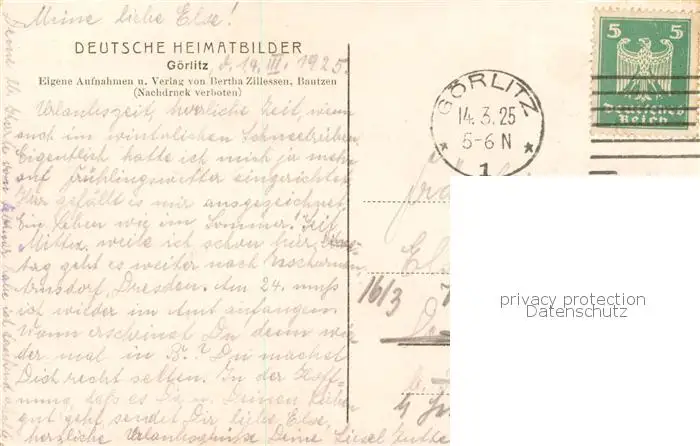 Meine liebe Else!
DEUTSCHE HEIMATBILDER
Görlitz, d. 14. III. 1925.
Eigene Aufnahmen u. Verlag von Bertha Zillessen, Bautzen
(Nachdruck verboten)
Urlaubszeit, herrliche Zeit, wenn
auch im winterlichen Schneetreiben.
Eigentlich hatte ich mich ja mehr
auf Frühlingswetter eingerichtet.
Hier gefällt es mir ausgezeichnet.
Ein Leben wie im Sommer! Seit
Mittw. weile ich schon hier,
tag geht es weiter nach
Arnsdorf, Dresden. Am 24. muss
ich wieder im Amt anfangen.
Wann erscheinst Du denn wie
der mal in B.? Du machst
Dich recht selten. In der Hoff-
nung, daß es Dir u. Deinen Lieben
gut geht, sendet Dir, liebe Else,
herzliche Urlaubsgrüße Deine Liesel
Deine
GÖRLITZ
14.3.25
5-6 N
* 1 *
5 5
Deutsches
Reich
16/3
privacy protection
Datenschutz